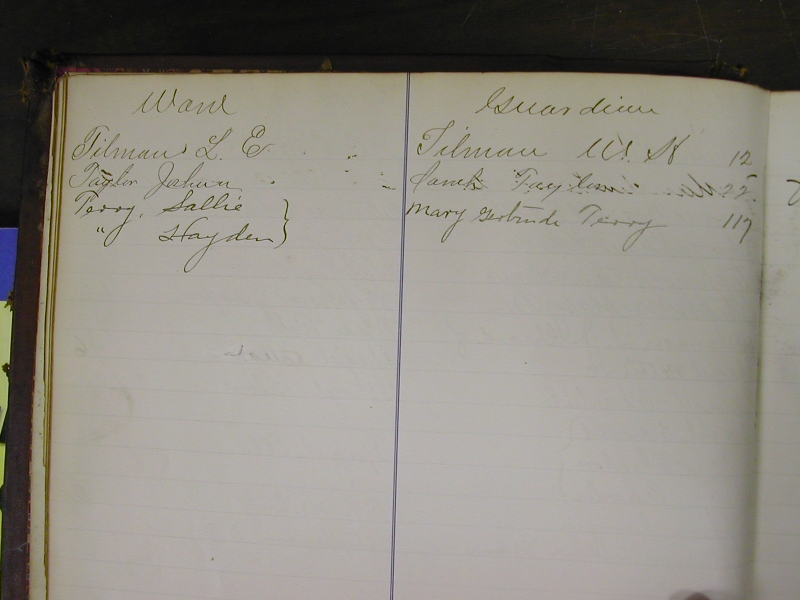 Ward Guardian
Tilman L. E. Tilman W. H 12
Taylor John Taylor 22
Terry, Sallie } Mary Gertrude Terry 117
" Hayden }